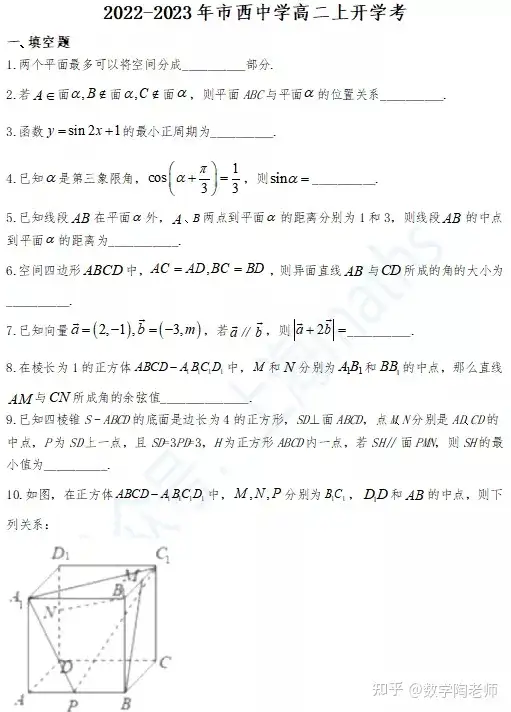 2022-2023年市西中学高二上开学考
一、填空题
1.两个平面最多可以将空间分成__________部分.
2.若A∈面α,B∉面α,C∉面α，则平面ABC与平面α的位置关系__________.
3.函数y=sin2x+1的最小正周期为__________.
4.已知α是第三象限角，cos(α+π/3)=1/3，则sinα=__________.
5.已知线段AB在平面α外，A、B两点到平面α的距离分别为1和3，则线段AB的中点
到平面α的距离为__________.
6.空间四边形ABCD中，AC=AD,BC=BD，则异面直线AB与CD所成的角的大小为
__________.
7.已知向量a⃗=(2,−1),b⃗=(−3,m)，若a⃗∥b⃗，则|a⃗+2b⃗|=__________.
8.在棱长为1的正方体ABCD−A₁B₁C₁D₁中，M和N分别为A₁B₁和BB₁的中点，那么直线
AM与CN所成角的余弦值__________.
9.已知四棱锥S-ABCD的底面是边长为4的正方形，SD⊥面ABCD，点M,N分别是AD,CD的
中点，P为SD上一点，且SD=3PD=3，H为正方形ABCD内一点，若SH//面PMN，则SH的最
小值为__________.
10.如图，在正方体ABCD−A₁B₁C₁D₁中，M,N,P分别为B₁C₁，D₁D和AB的中点，则下
列关系：
D₁
C₁
M
A₁
B₁
N
D
C
A
P
B
知乎 @数学陶老师